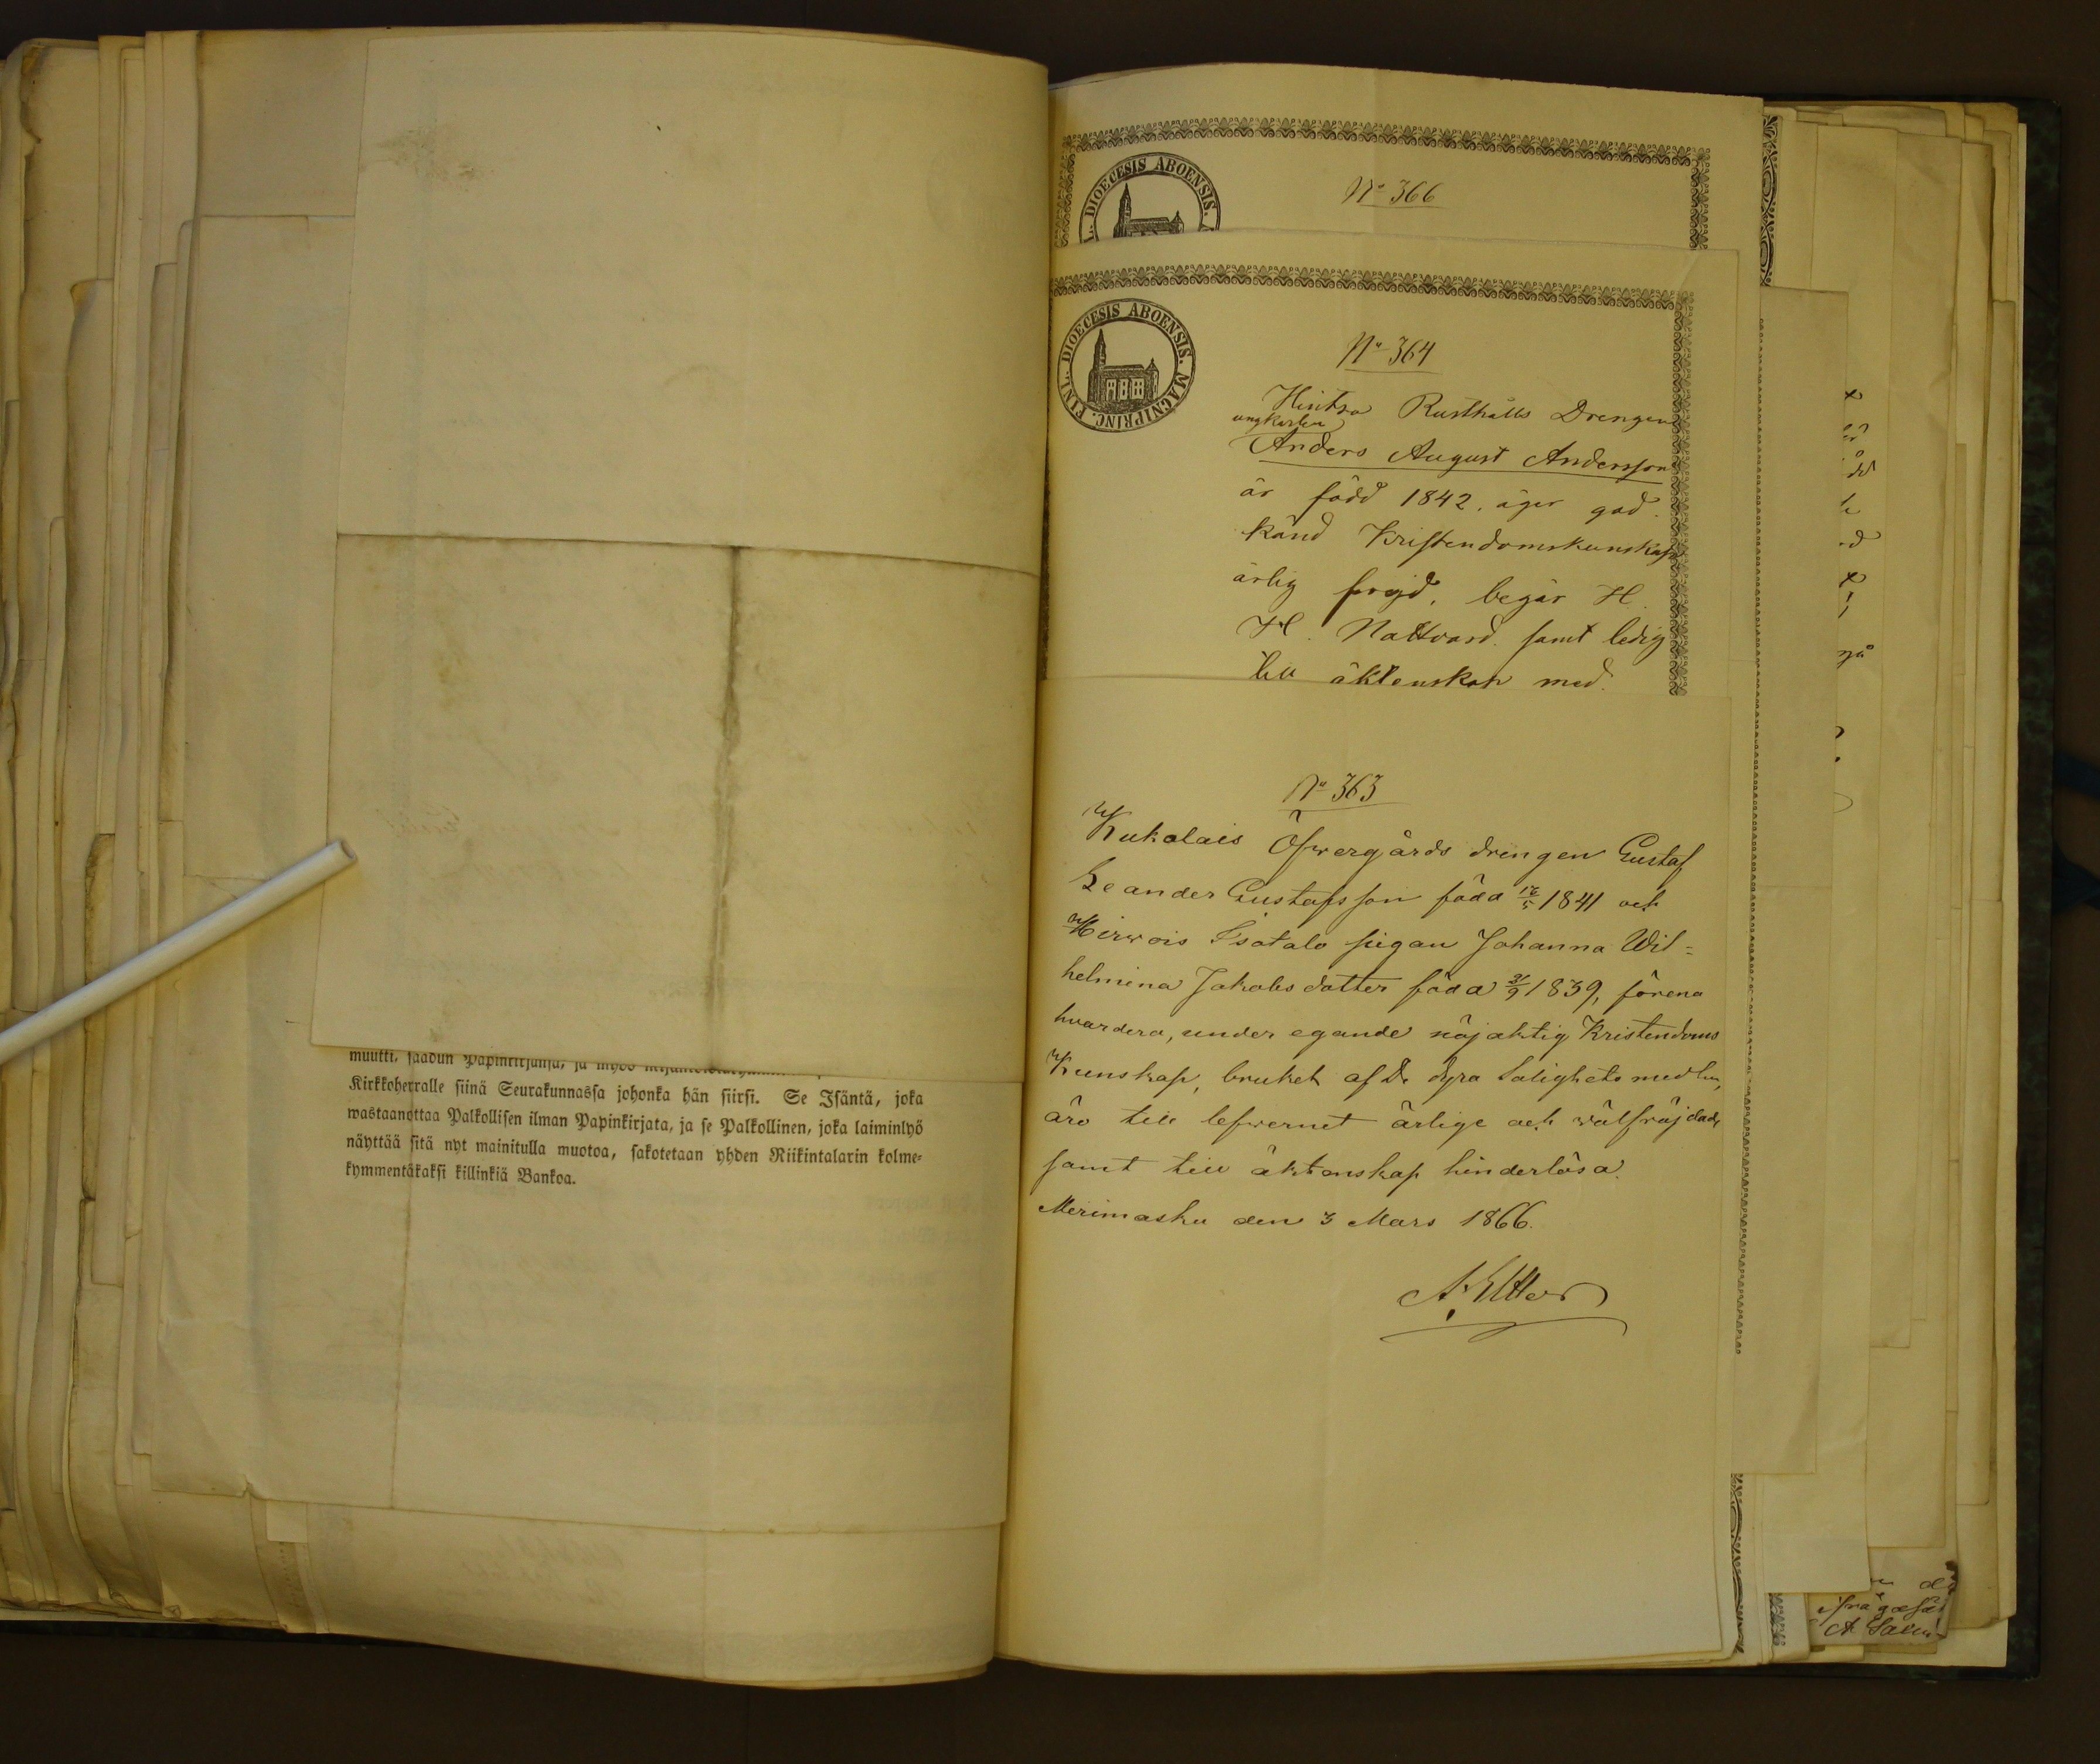 muutti, saadun Papinkirjansa, ja myös
Kirkkoherralle siinä Seurakunnassa johonka hän siirsi. Se Isäntä, joka
wastaanottaa Palkollisen ilman Papinkirjata, ja se Palkollinen, joka laiminlyö
näyttää sitä nyt mainitulla muotoa, sakotetaan yhden Riikintalarin kolme-
kymmentäkaksi killinkiä Bankoa.
DIOECESIS ABOENSIS.
No 366
MAGNIPRINC. FINL. DIOECESIS ABOENSIS.
No 364
Hintsa Rusthålls Drengen
ungkarlen
Anders August Andersson
är född 1842. äger god
känd Kristendomskunskap
ärlig frejd, begår H.
H. Nattvard. samt ledig
till äktenskap med.
No 363
Kukolais Öfwergårds drengen Gustaf
Leander Gustafsson född 12/5 1841 och
Hirwois Isotalo pigan Johanna Wil=
helmina Jakobsdotter född 21/9 1839, förena
hvardera, under egande nöjaktig Kristendoms
Kunskap, bruket af De dyra Salighets medlen,
äro till lefwernet ärlige och wälfräjdade
samt till äktenskap hinderlösa.
Merimasku den 3 Mars 1866.